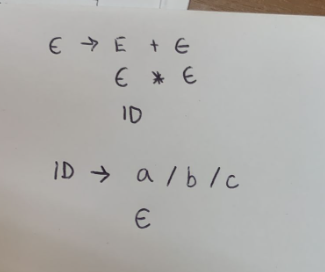 E → E + E
E * E
ID
ID → a / b / c
E